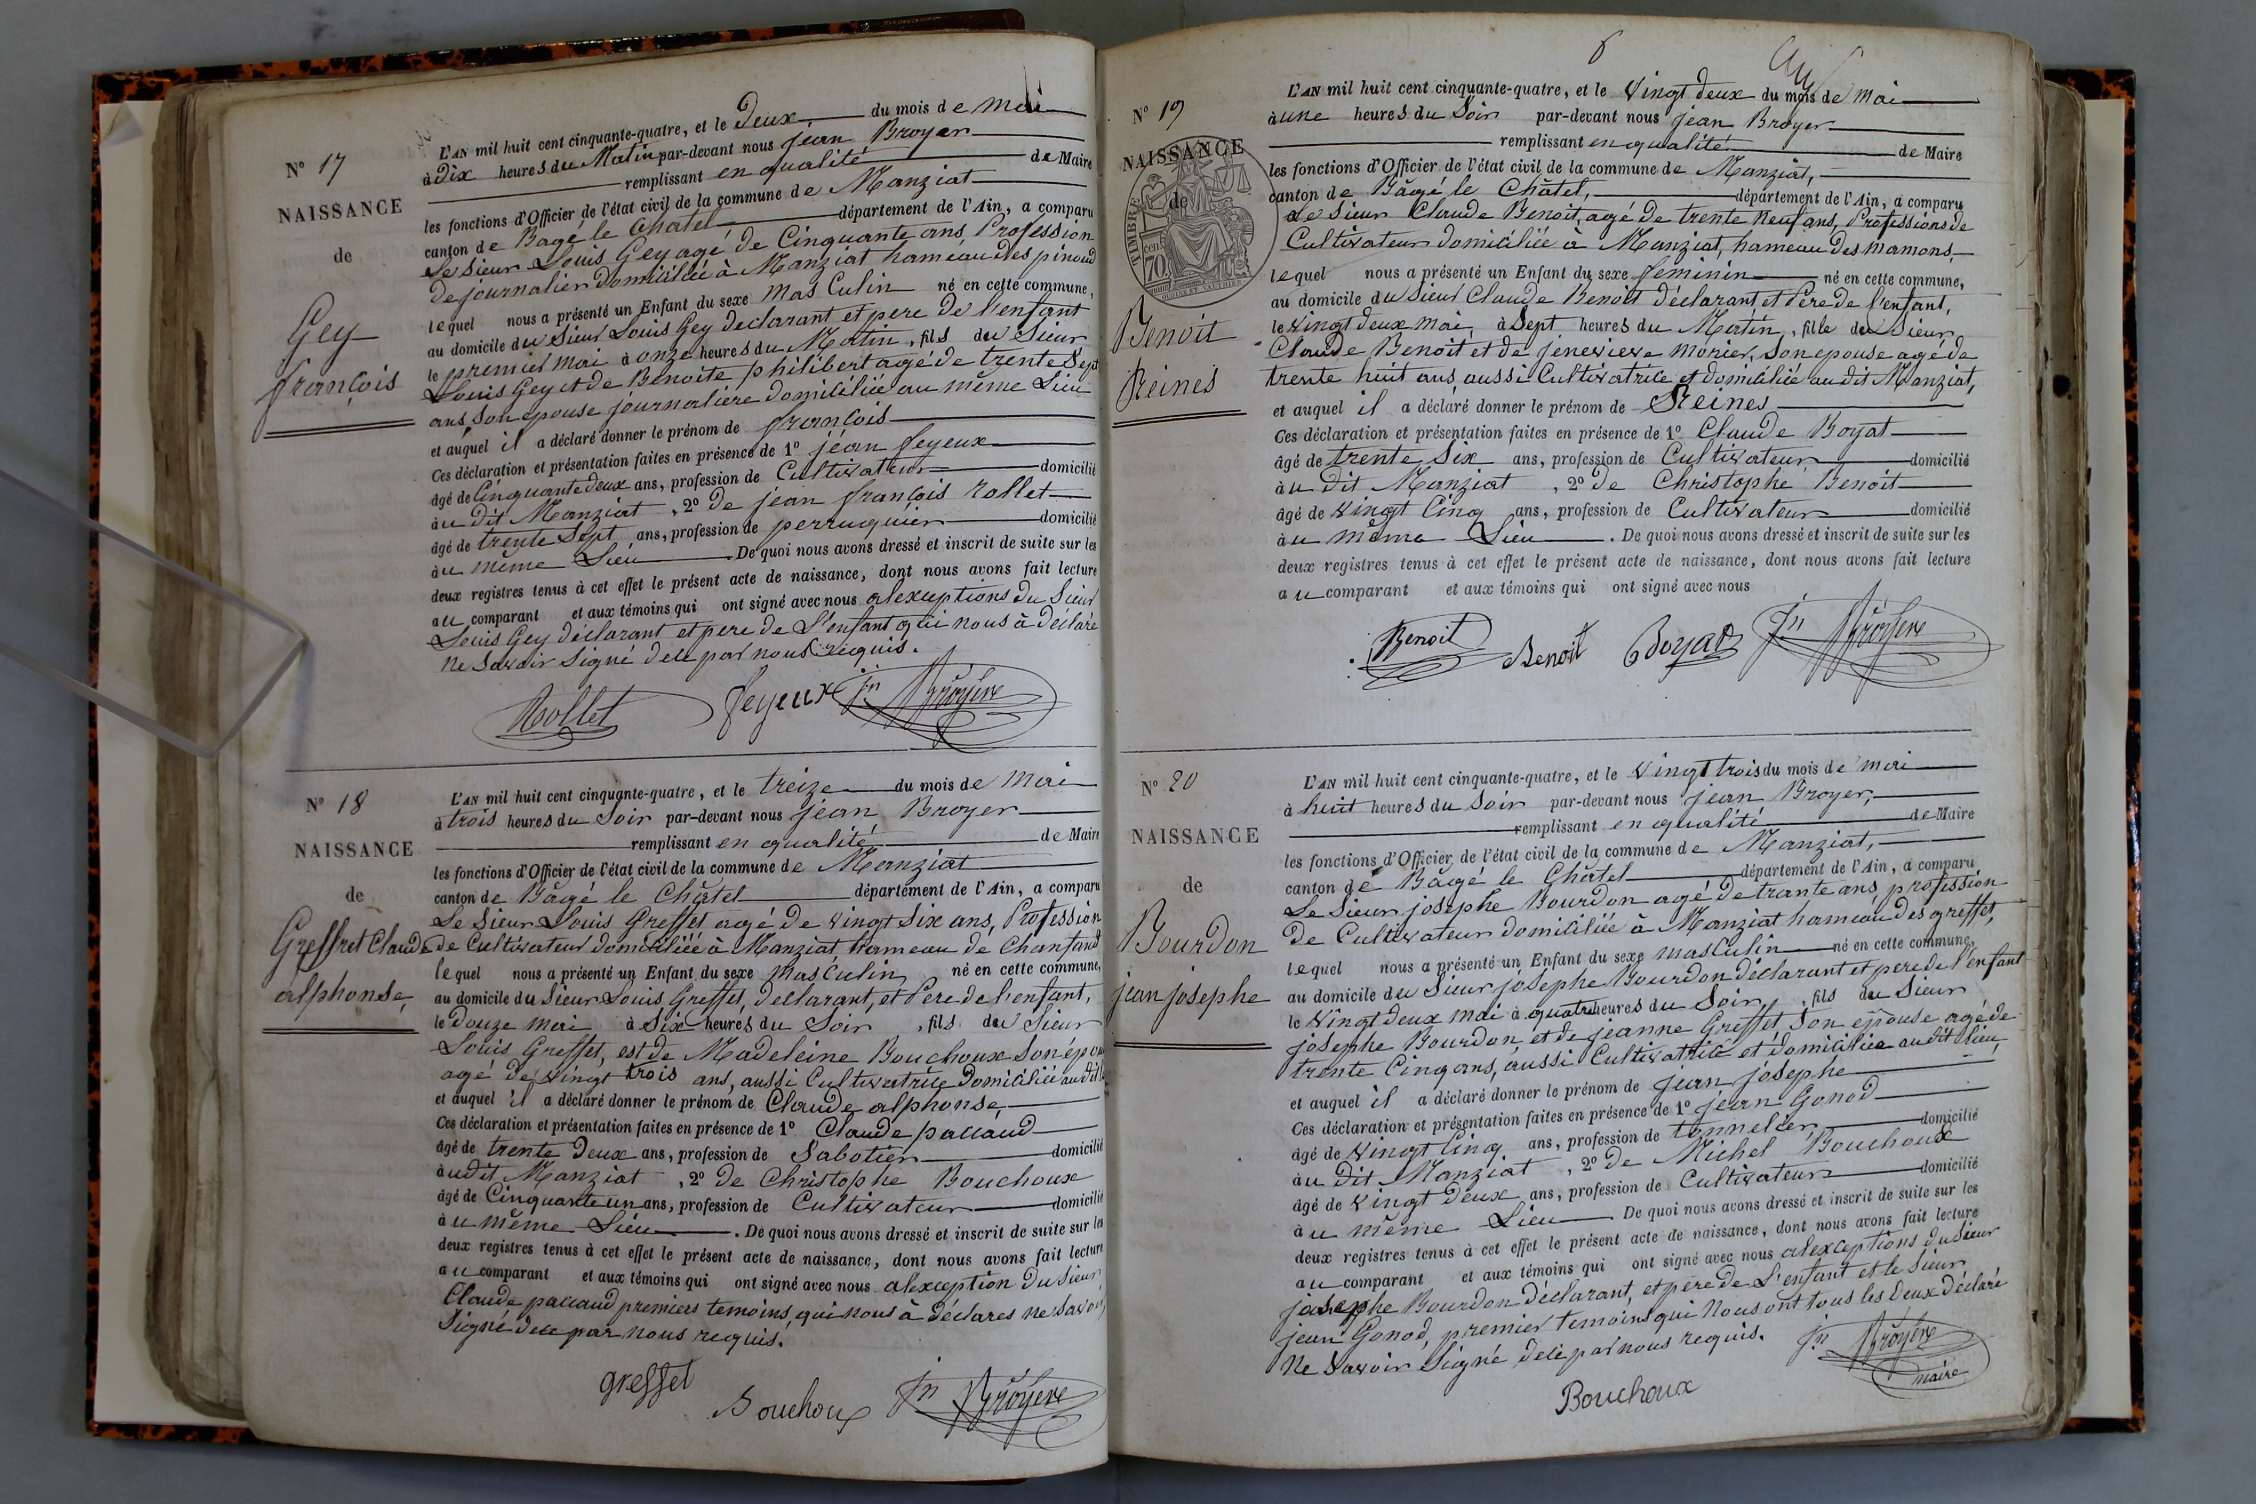 N° 17
NAISSANCE
de
Gey
françois
L'AN mil huit cent cinquante-quatre, et le Deux du mois de Mai
à Dix heures du Matin par-devant nous jean Broyer
remplissant en qualité de Maire
les fonctions d'Officier de l'état civil de la commune de Manziat
canton de Bagé le Chatel département de l'Ain, a comparu
Le sieur Louis Gey agé de Cinquante ans, Profession
De journalier Domiciliée à Manziat hameau des pinoud
lequel nous a présenté un Enfant du sexe Mas Culin né en cette commune,
au domicile du Sieur Louis Gey declarant et pere de l'enfant
le premier mai à onze heures du Matin, fils du Sieur
Louis Gey et de Benoite philibert agé de trente Sept
ans Son épouse journaliere domiciliée au même Lieu
et auquel il a déclaré donner le prénom de françois
Ces déclaration et présentation faites en présence de 1° jéan feyeux
âgé de Cinquante deux ans, profession de Cultivateur domicilié
à u Dit Manziat, 2° De jean françois Rollet
âgé de trente Sept ans, profession de perruquier domicilié
à u même Lieu. De quoi nous avons dressé et inscrit de suite sur les
deux registres tenus à cet effet le présent acte de naissance, dont nous avons fait lecture
au comparant et aux témoins qui ont signé avec nous alexceptions du Sieur
Louis Gey déclarant et pere de L'enfant qui nous à Déclaré
ne Savoir Signé dece par nous requis.
Rollet feyeux Jn Broyere
N° 18
NAISSANCE
de
Greffet Claude
alphonse,
L'AN mil huit cent cinquante-quatre, et le treize du mois de Mai
à trois heures du Soir par-devant nous jean Broyer
remplissant en qualité de Maire
les fonctions d'Officier de l'état civil de la commune de Manziat
canton de Bâgé le Châtel département de l'Ain, a comparu
Le Sieur Louis Greffet agé de vingt Six ans, Profession
de Cultivateur domiciliéé à Manziat, hameau de Chanfand
lequel nous a présenté un Enfant du sexe Masculin né en cette commune,
au domicile du Sieur Louis Greffet, Declarant, et Pere de l'enfant,
le Douze Mai à Six heures du Soir, fils du Sieur
Louis Greffet, est de Madeleine Bouchoux Son épou
agé de vingt trois ans, aussi Cultivatrice Domiciliée au dit
et auquel il a déclaré donner le prénom de Claude alphonse,
Ces déclaration et présentation faites en présence de 1° Claude paccaud
âgé de trente Deux ans, profession de Sabotier domicilié
à u dit Manziat, 2° De Christophe Bouchoux
âgé de Cinquante un ans, profession de Cultivateur domicilié
à u même Lieu. De quoi nous avons dressé et inscrit de suite sur les
deux registres tenus à cet effet le présent acte de naissance, dont nous avons fait lecture
au comparant et aux témoins qui ont signé avec nous alexception Du Sieur
Claude paccaud premiers temoins, qui nous à Déclares ne Savoir,
Signé dece par nous requis.
greffet Bouchoux Jn Broyere
6
N° 19
NAISSANCE
de
TIMBRE
70
Benoit
Reines
L'AN mil huit cent cinquante-quatre, et le vingt deux du mois de Mai
à une heures du Soir par-devant nous jean Broyer
remplissant en qualité de Maire
les fonctions d'Officier de l'état civil de la commune de Manziat,
canton de Bâgé le Châtel, département de l'Ain, a comparu
Le Sieur Claude Benoit, agé de trente Neuf ans, Professions de
Cultivateur domiciliée à Manziat, hameau des mamons,
lequel nous a présenté un Enfant du sexe feminin né en cette commune,
au domicile du Sieur Claude Benoit déclarant et Pere de l'enfant,
le vingt deux mai, à Sept heures du Matin, fille du Sieur
Claude Benoit et de jenevieve Morier, Son epouse agé de
trente huit ans, aussi Cultivatrice et domiciliée au dit Manziat,
et auquel il a déclaré donner le prénom de Reines
Ces déclaration et présentation faites en présence de 1° Claude Boyat
âgé de trente Six ans, profession de Cultivateur domicilié
à u Dit Manziat, 2° De Christophe Benoit
âgé de vingt Cinq ans, profession de Cultivateur domicilié
à u même Lieu. De quoi nous avons dressé et inscrit de suite sur les
deux registres tenus à cet effet le présent acte de naissance, dont nous avons fait lecture
au comparant et aux témoins qui ont signé avec nous
Benoit Benoit Boyat Jn Broyere
N° 20
NAISSANCE
de
Bourdon
jean josephe
L'AN mil huit cent cinquante-quatre, et le vingt trois du mois de mai
à huit heures du Soir par-devant nous jean Broyer,
remplissant en qualité de Maire
les fonctions d'Officier de l'état civil de la commune de Manziat,
canton de Bâgé le Châtel département de l'Ain, a comparu
Le Sieur josephe Bourdon agé de trante ans, profession
De Cultivateur domiciliée à Manziat hameau des greffet,
lequel nous a présenté un Enfant du sexe masculin né en cette commune,
au domicile du Sieur josephe Bourdon déclarant et pere de l'enfant
le vingt deux mai à quatre heures du Soir, fils du Sieur
josephe Bourdon, et de jeanne Greffet, Son épouse agé de
trente Cinq ans, aussi Cultivatrice et domiciliée au dit lieu,
et auquel il a déclaré donner le prénom de jean josephe
Ces déclaration et présentation faites en présence de 1° jean Gonod
âgé de vingt Cinq ans, profession de tonnelier domicilié
à u Dit Manziat, 2° De Michel Bouchoux
âgé de vingt Deux ans, profession de Cultivateur domicilié
à u même Lieu. De quoi nous avons dressé et inscrit de suite sur les
deux registres tenus à cet effet le présent acte de naissance, dont nous avons fait lecture
au comparant et aux témoins qui ont signé avec nous alexceptions du Sieur
josephe Bourdon déclarant, et pere de L'enfant et le Sieur
jean Gonod, premier temoins qui Nous ont tous les Deux déclaré
Ne Savoir Signé dece par nous requis.
Jn Broyere
maire
Bouchoux